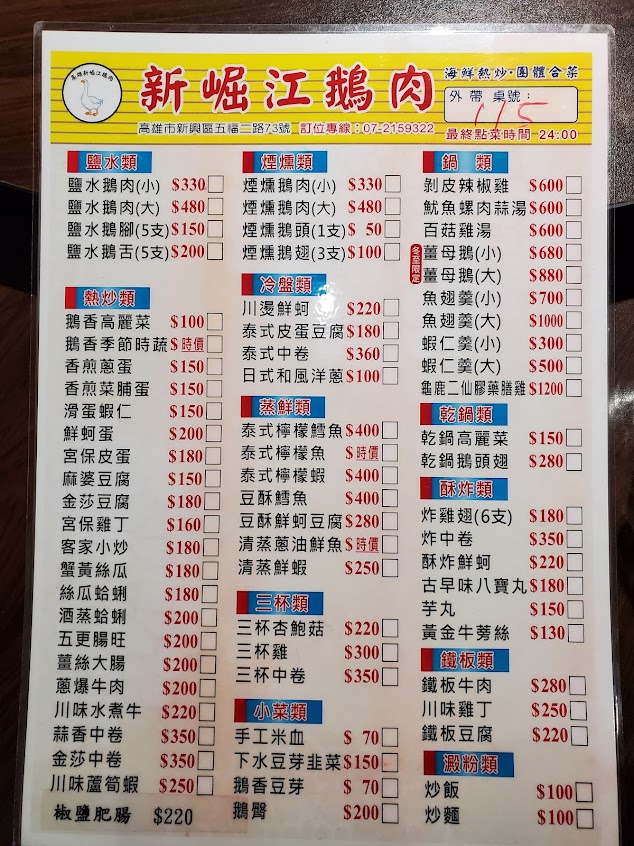 高雄新崛江鵝肉
新崛江鵝肉
海鮮熱炒·團體合菜
外帶 桌號：
115
高雄市新興區五福二路73號 訂位專線：07-2159322
最終點菜時間 24:00
鹽水類
鹽水鵝肉(小) $330
鹽水鵝肉(大) $480
鹽水鵝腳(5支) $150
鹽水鵝舌(5支) $200
熱炒類
鵝香高麗菜 $100
鵝香季節時蔬 $時價
香煎蔥蛋 $150
香煎菜脯蛋 $150
滑蛋蝦仁 $150
鮮蚵蛋 $200
宮保皮蛋 $180
麻婆豆腐 $150
金莎豆腐 $180
宮保雞丁 $160
客家小炒 $180
蟹黃絲瓜 $180
絲瓜蛤蜊 $180
酒蒸蛤蜊 $200
五更腸旺 $200
薑絲大腸 $200
蔥爆牛肉 $200
川味水煮牛 $220
蒜香中卷 $350
金莎中卷 $350
川味蘆筍蝦 $250
椒鹽肥腸 $220
煙燻類
煙燻鵝肉(小) $330
煙燻鵝肉(大) $480
煙燻鵝頭(1支) $ 50
煙燻鵝翅(3支) $100
冷盤類
川燙鮮蚵 $220
泰式皮蛋豆腐 $180
泰式中卷 $360
日式和風洋蔥 $100
蒸鮮類
泰式檸檬鱈魚 $400
泰式檸檬魚 $時價
泰式檸檬蝦 $400
豆酥鱈魚 $400
豆酥鮮蚵豆腐 $280
清蒸蔥油鮮魚 $時價
清蒸鮮蝦 $250
三杯類
三杯杏鮑菇 $220
三杯雞 $300
三杯中卷 $350
小菜類
手工米血 $ 70
下水豆芽韭菜 $150
鵝香豆芽 $ 70
鵝臀 $200
鍋　類
剝皮辣椒雞 $600
魷魚螺肉蒜湯 $600
百菇雞湯 $600
冬至限定
薑母鵝(小) $680
薑母鵝(大) $880
魚翅羹(小) $700
魚翅羹(大) $1000
蝦仁羹(小) $300
蝦仁羹(大) $500
龜鹿二仙膠藥膳雞 $1200
乾鍋類
乾鍋高麗菜 $150
乾鍋鵝頭翅 $280
酥炸類
炸雞翅(6支) $180
炸中卷 $350
酥炸鮮蚵 $220
古早味八寶丸 $180
芋丸 $150
黃金牛蒡絲 $130
鐵板類
鐵板牛肉 $280
川味雞丁 $250
鐵板豆腐 $220
澱粉類
炒飯 $100
炒麵 $100